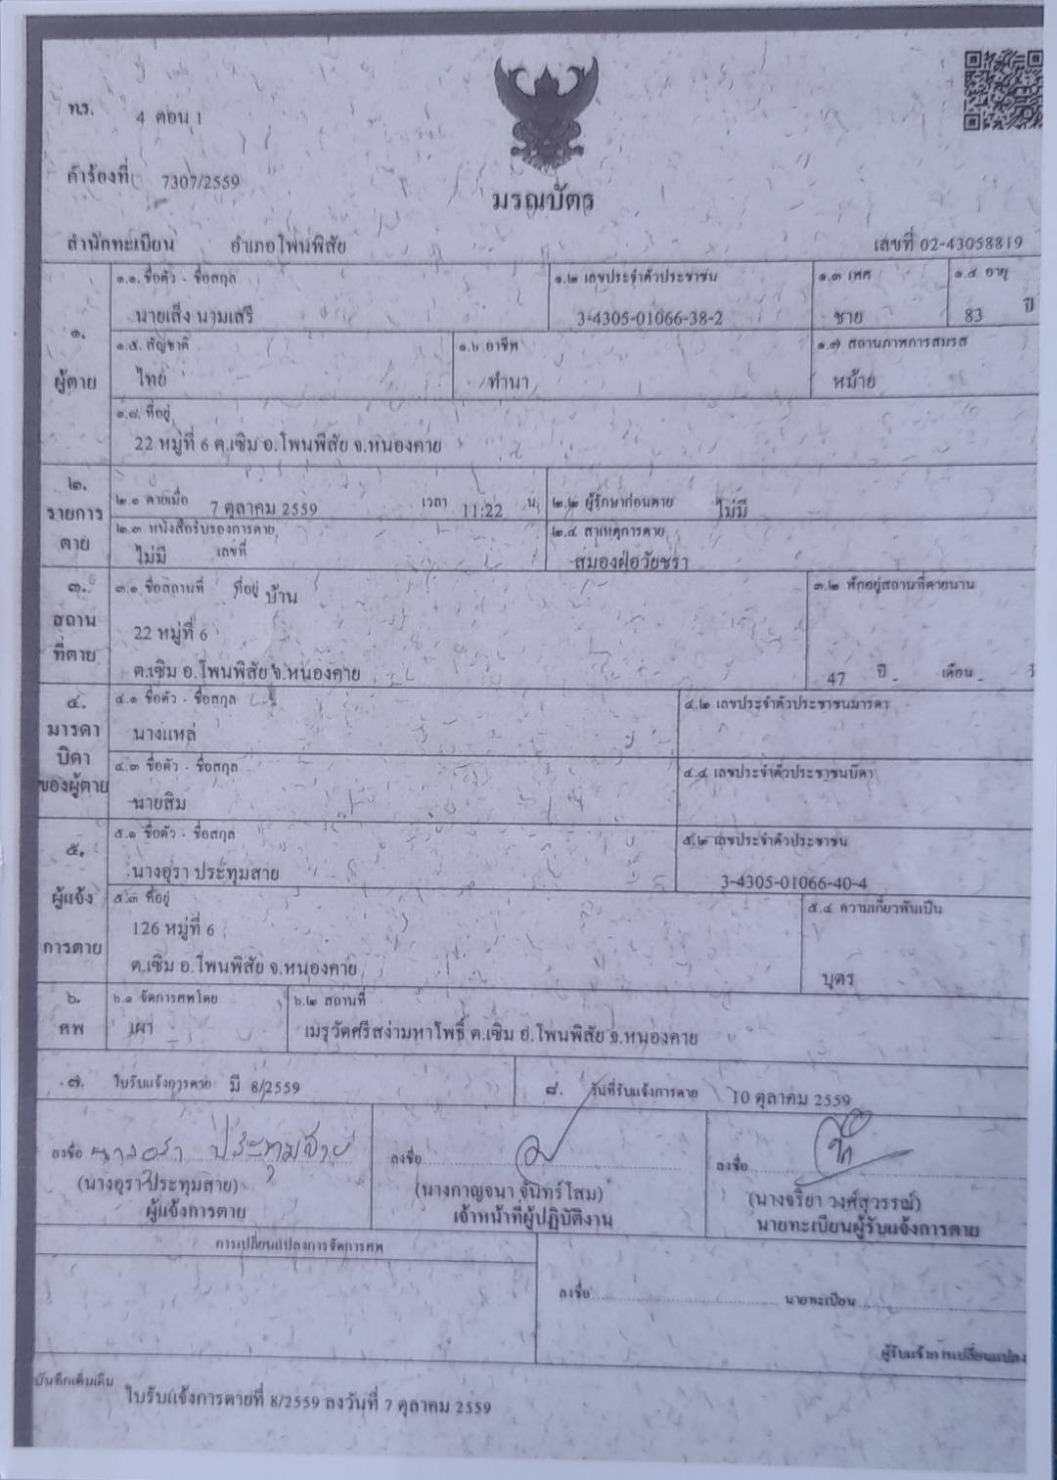 ท.ร. 4 ตอน 1
คำร้องที่ 7307/2559
มรณบัตร
สำนักทะเบียน อำเภอโพนพิสัย เลขที่ 02-43058819
๑.
ผู้ตาย
๑.๑. ชื่อตัว - ชื่อสกุล
นายเส็ง นามเสรี
๑.๒ เลขประจำตัวประชาชน
3-4305-01066-38-2
๑.๓ เพศ
ชาย
๑.๔ อายุ
83 ปี
๑.๕. สัญชาติ
ไทย
๑.๖ อาชีพ
ทำนา
๑.๗ สถานภาพการสมรส
หม้าย
๑.๘. ที่อยู่
22 หมู่ที่ 6 ต.เซิม อ.โพนพิสัย จ.หนองคาย
๒.
รายการ
ตาย
๒.๑ ตายเมื่อ 7 ตุลาคม 2559 เวลา 11:22 น.
๒.๒ ผู้รักษาก่อนตาย ไม่มี
๒.๓ หนังสือรับรองการตาย
ไม่มี เลขที่
๒.๔ สาเหตุการตาย
สมองฝ่อวัยชรา
๓.
สถาน
ที่ตาย
๓.๑ ชื่อสถานที่ ที่อยู่ บ้าน
22 หมู่ที่ 6
ต.เซิม อ.โพนพิสัย จ.หนองคาย
๓.๒ พักอยู่สถานที่ตายนาน
47 ปี - เดือน -
๔.
มารดา
บิดา
ของผู้ตาย
๔.๑ ชื่อตัว - ชื่อสกุล
นางแหล่
๔.๒ เลขประจำตัวประชาชนมารดา
๔.๓ ชื่อตัว - ชื่อสกุล
นายสิม
๔.๔ เลขประจำตัวประชาชนบิดา
๕.
ผู้แจ้ง
การตาย
๕.๑ ชื่อตัว - ชื่อสกุล
นางอุรา ประทุมสาย
๕.๒ เลขประจำตัวประชาชน
3-4305-01066-40-4
๕.๓ ที่อยู่
126 หมู่ที่ 6
ต.เซิม อ.โพนพิสัย จ.หนองคาย
๕.๔ ความเกี่ยวพันเป็น
บุตร
๖.
ศพ
๖.๑ จัดการศพโดย
เผา
๖.๒ สถานที่
เมรุวัดศรีสง่ามหาโพธิ์ ต.เซิม อ.โพนพิสัย จ.หนองคาย
๗. ใบรับแจ้งการตาย มี 8/2559
๘. วันที่รับแจ้งการตาย 10 ตุลาคม 2559
ลงชื่อ นางอุรา ประทุมสาย
(นางอุรา ประทุมสาย)
ผู้แจ้งการตาย
ลงชื่อ
(นางกาญจนา จันทร์โสม)
เจ้าหน้าที่ผู้ปฏิบัติงาน
ลงชื่อ
(นางจริยา วงศ์สุวรรณ์)
นายทะเบียนผู้รับแจ้งการตาย
การเปลี่ยนแปลงการจัดการศพ
ลงชื่อ นายทะเบียน
ผู้รับแจ้งการเปลี่ยนแปลง
บันทึกเพิ่มเติม
ใบรับแจ้งการตายที่ 8/2559 ลงวันที่ 7 ตุลาคม 2559